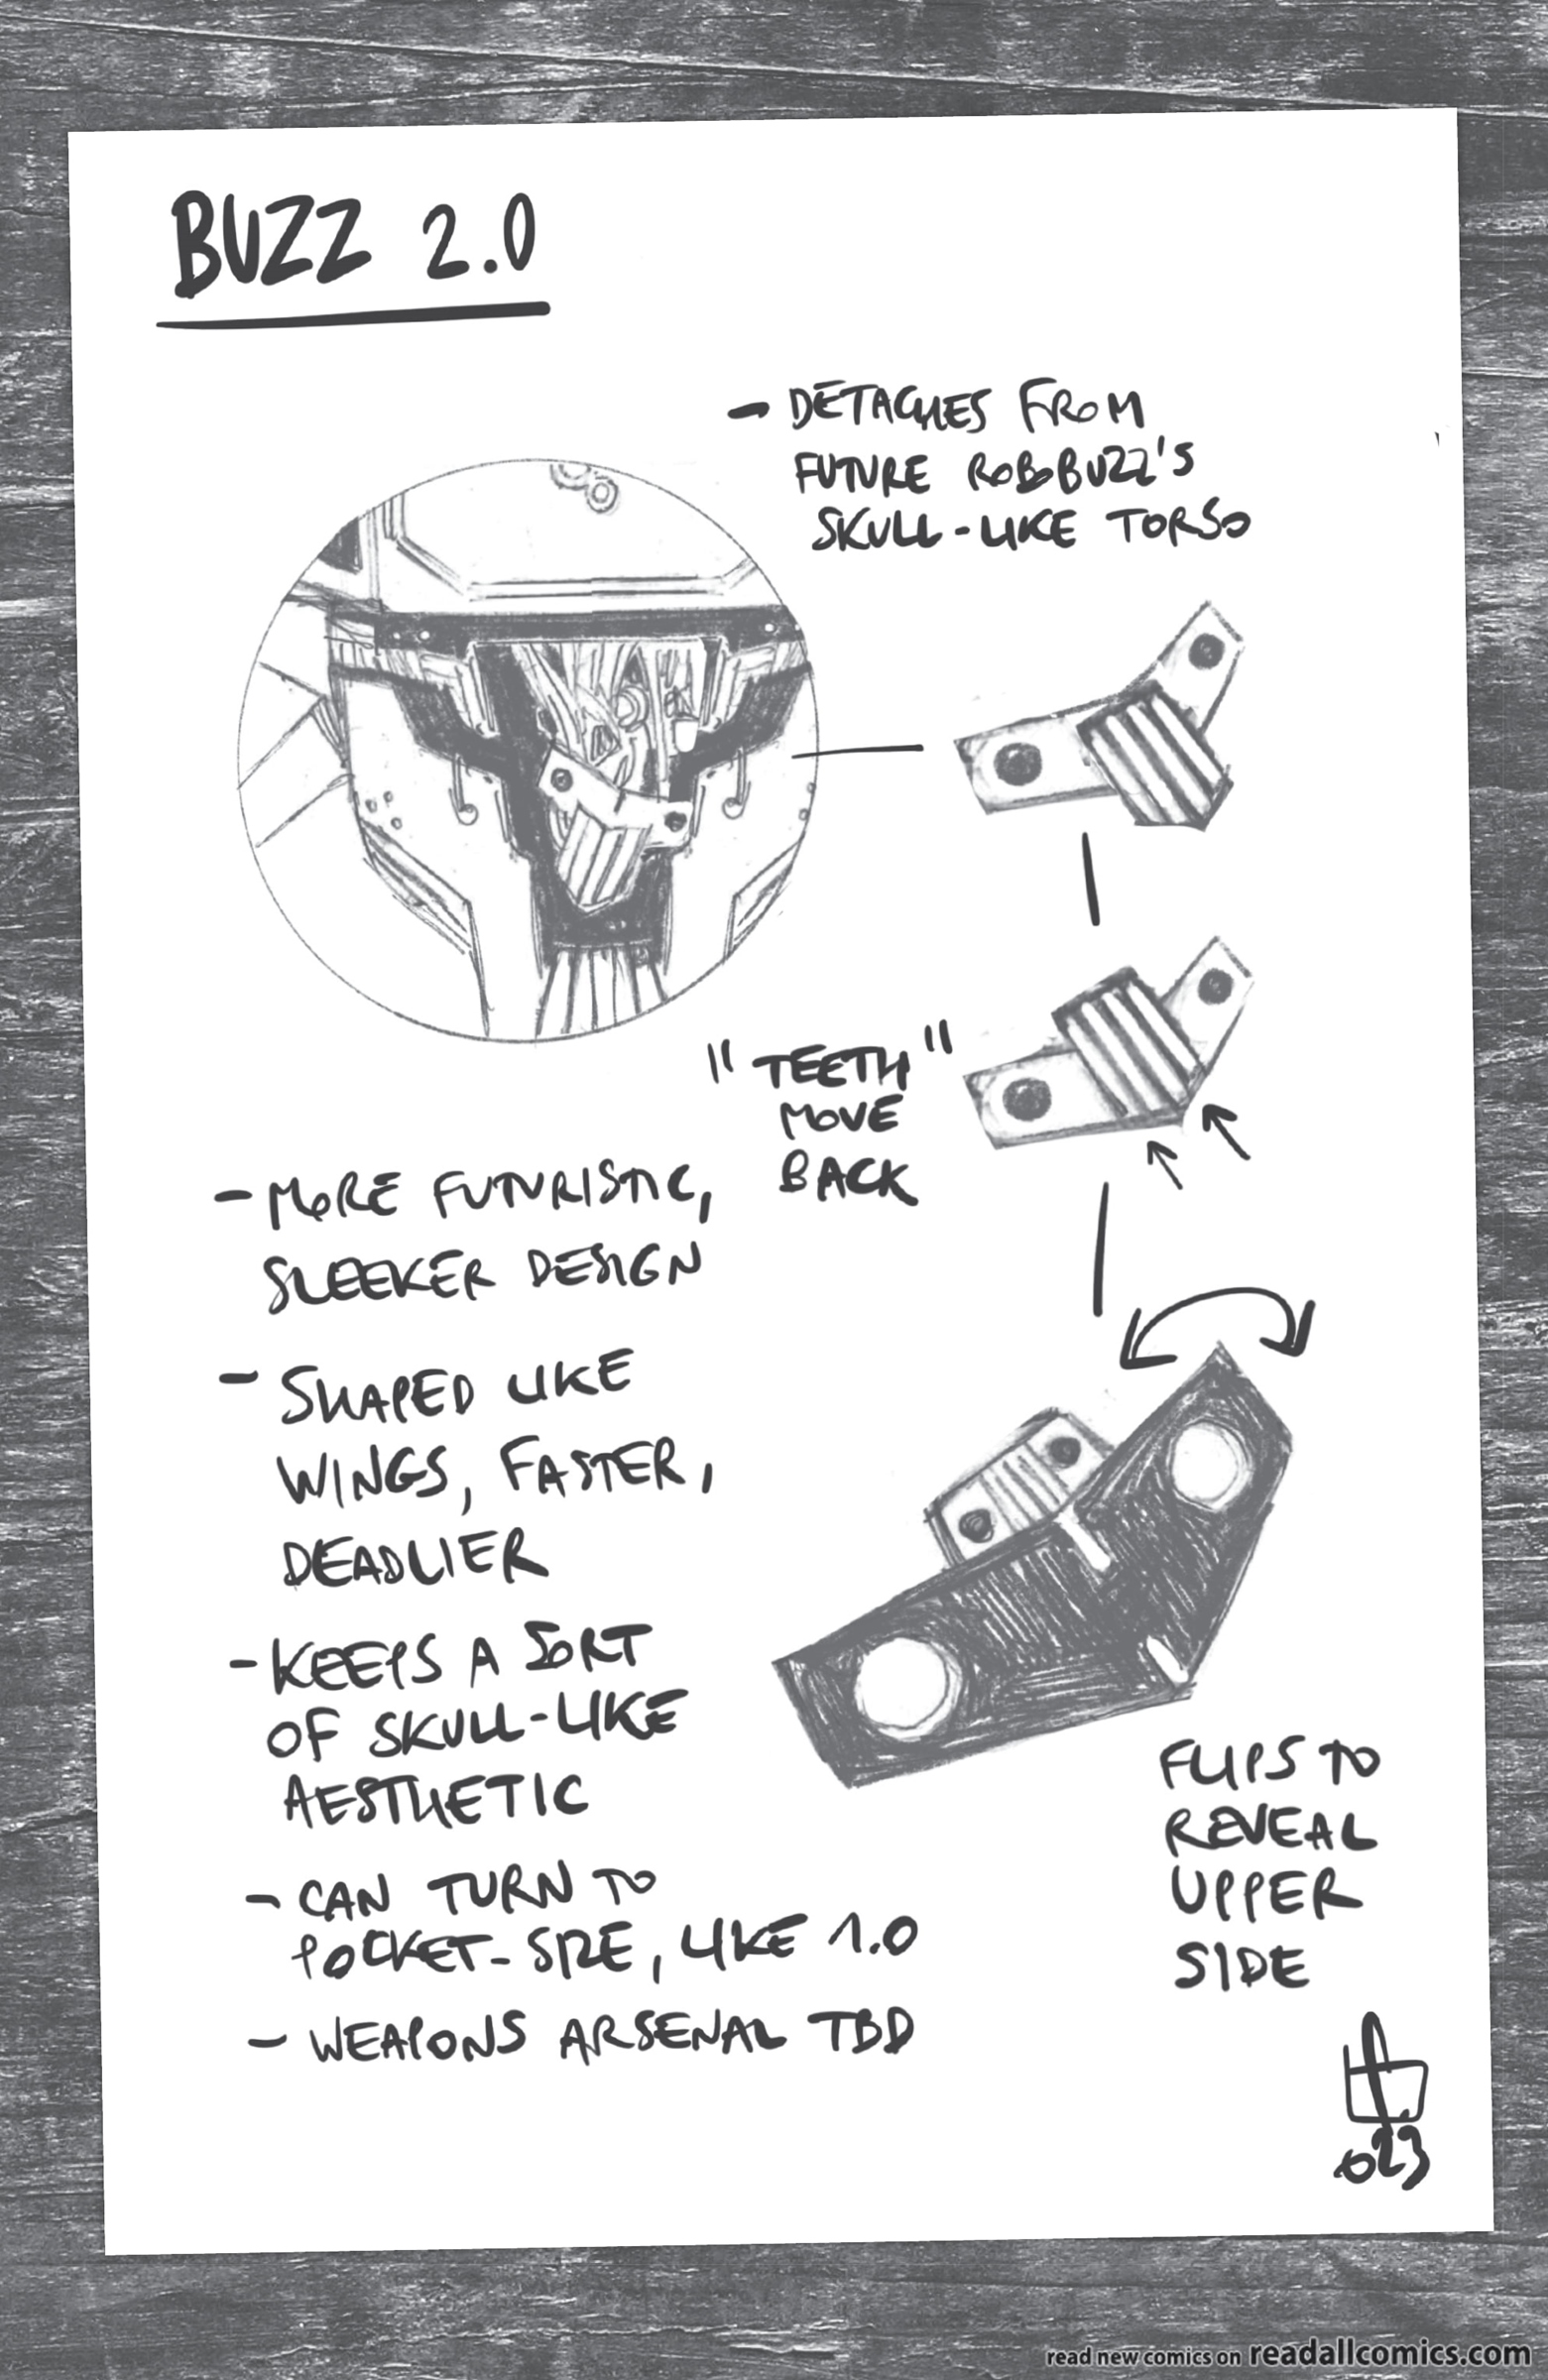 BUZZ 2.0
- DETACHES FROM
FUTURE ROBOBUZZ'S
SKULL-LIKE TORSO
"TEETH"
MOVE
BACK
- MORE FUTURISTIC,
SLEEKER DESIGN
- SHAPED LIKE
WINGS, FASTER,
DEADLIER
- KEEPS A SORT
OF SKULL-LIKE
AESTHETIC
- CAN TURN TO
POCKET-SIZE, LIKE 1.0
- WEAPONS ARSENAL TBD
FLIPS TO
REVEAL
UPPER
SIDE
023
read new comics on readallcomics.com